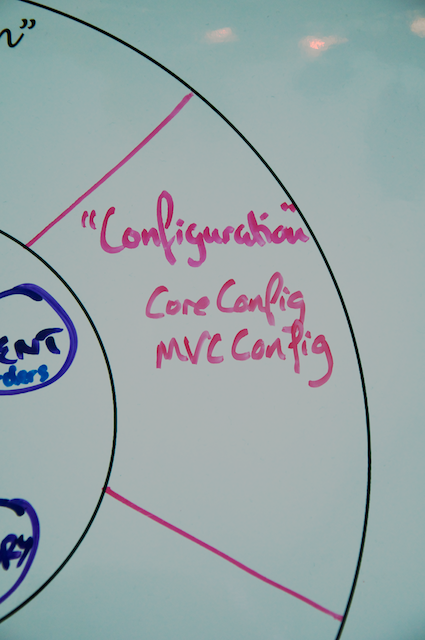 "Configuration"
Core Config
MVC Config
ENT
ders
RY